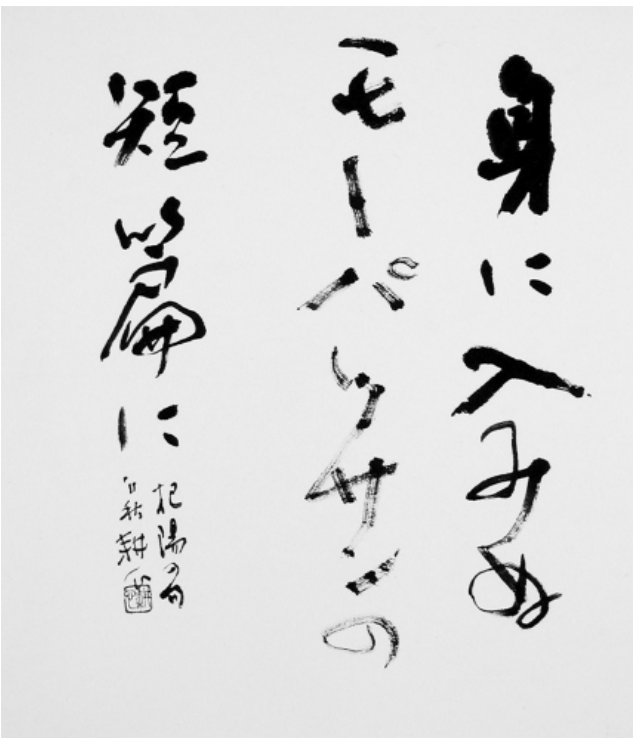 身に入みぬ
モーパッサンの
短篇に
杞陽の句